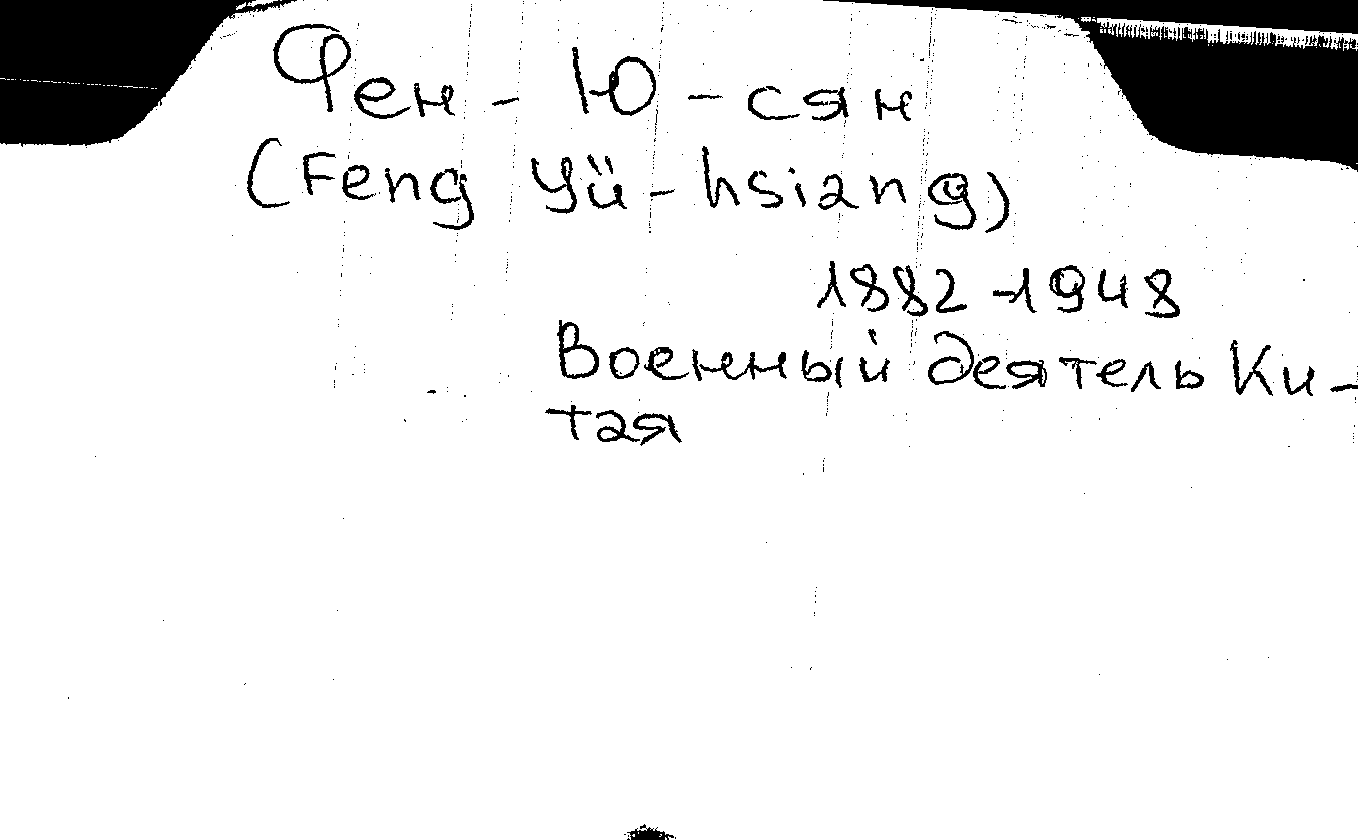 Фен - Ю - сян
(Feng Yü - hsiang)
1882 - 1948
Военный деятель Ки-
тая